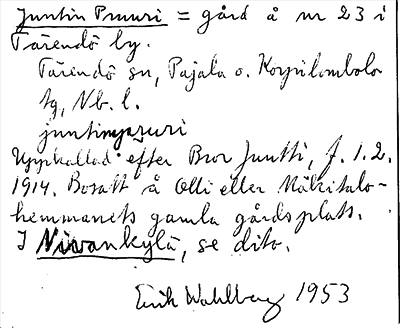 Juntin Pruuri = gård å nr 23 i
Tärendö by.
Tärendö sn, Pajala o. Korpilombolo
tg, Nb. l.
Uppkallad efter Bror Juntti, f. 1.2.
1914. Bosatt å Olli eller Mäkitalo-
hemmanets gamla gårdsplats.
I Nivankylä, se dito.
Erik Wahlberg 1953